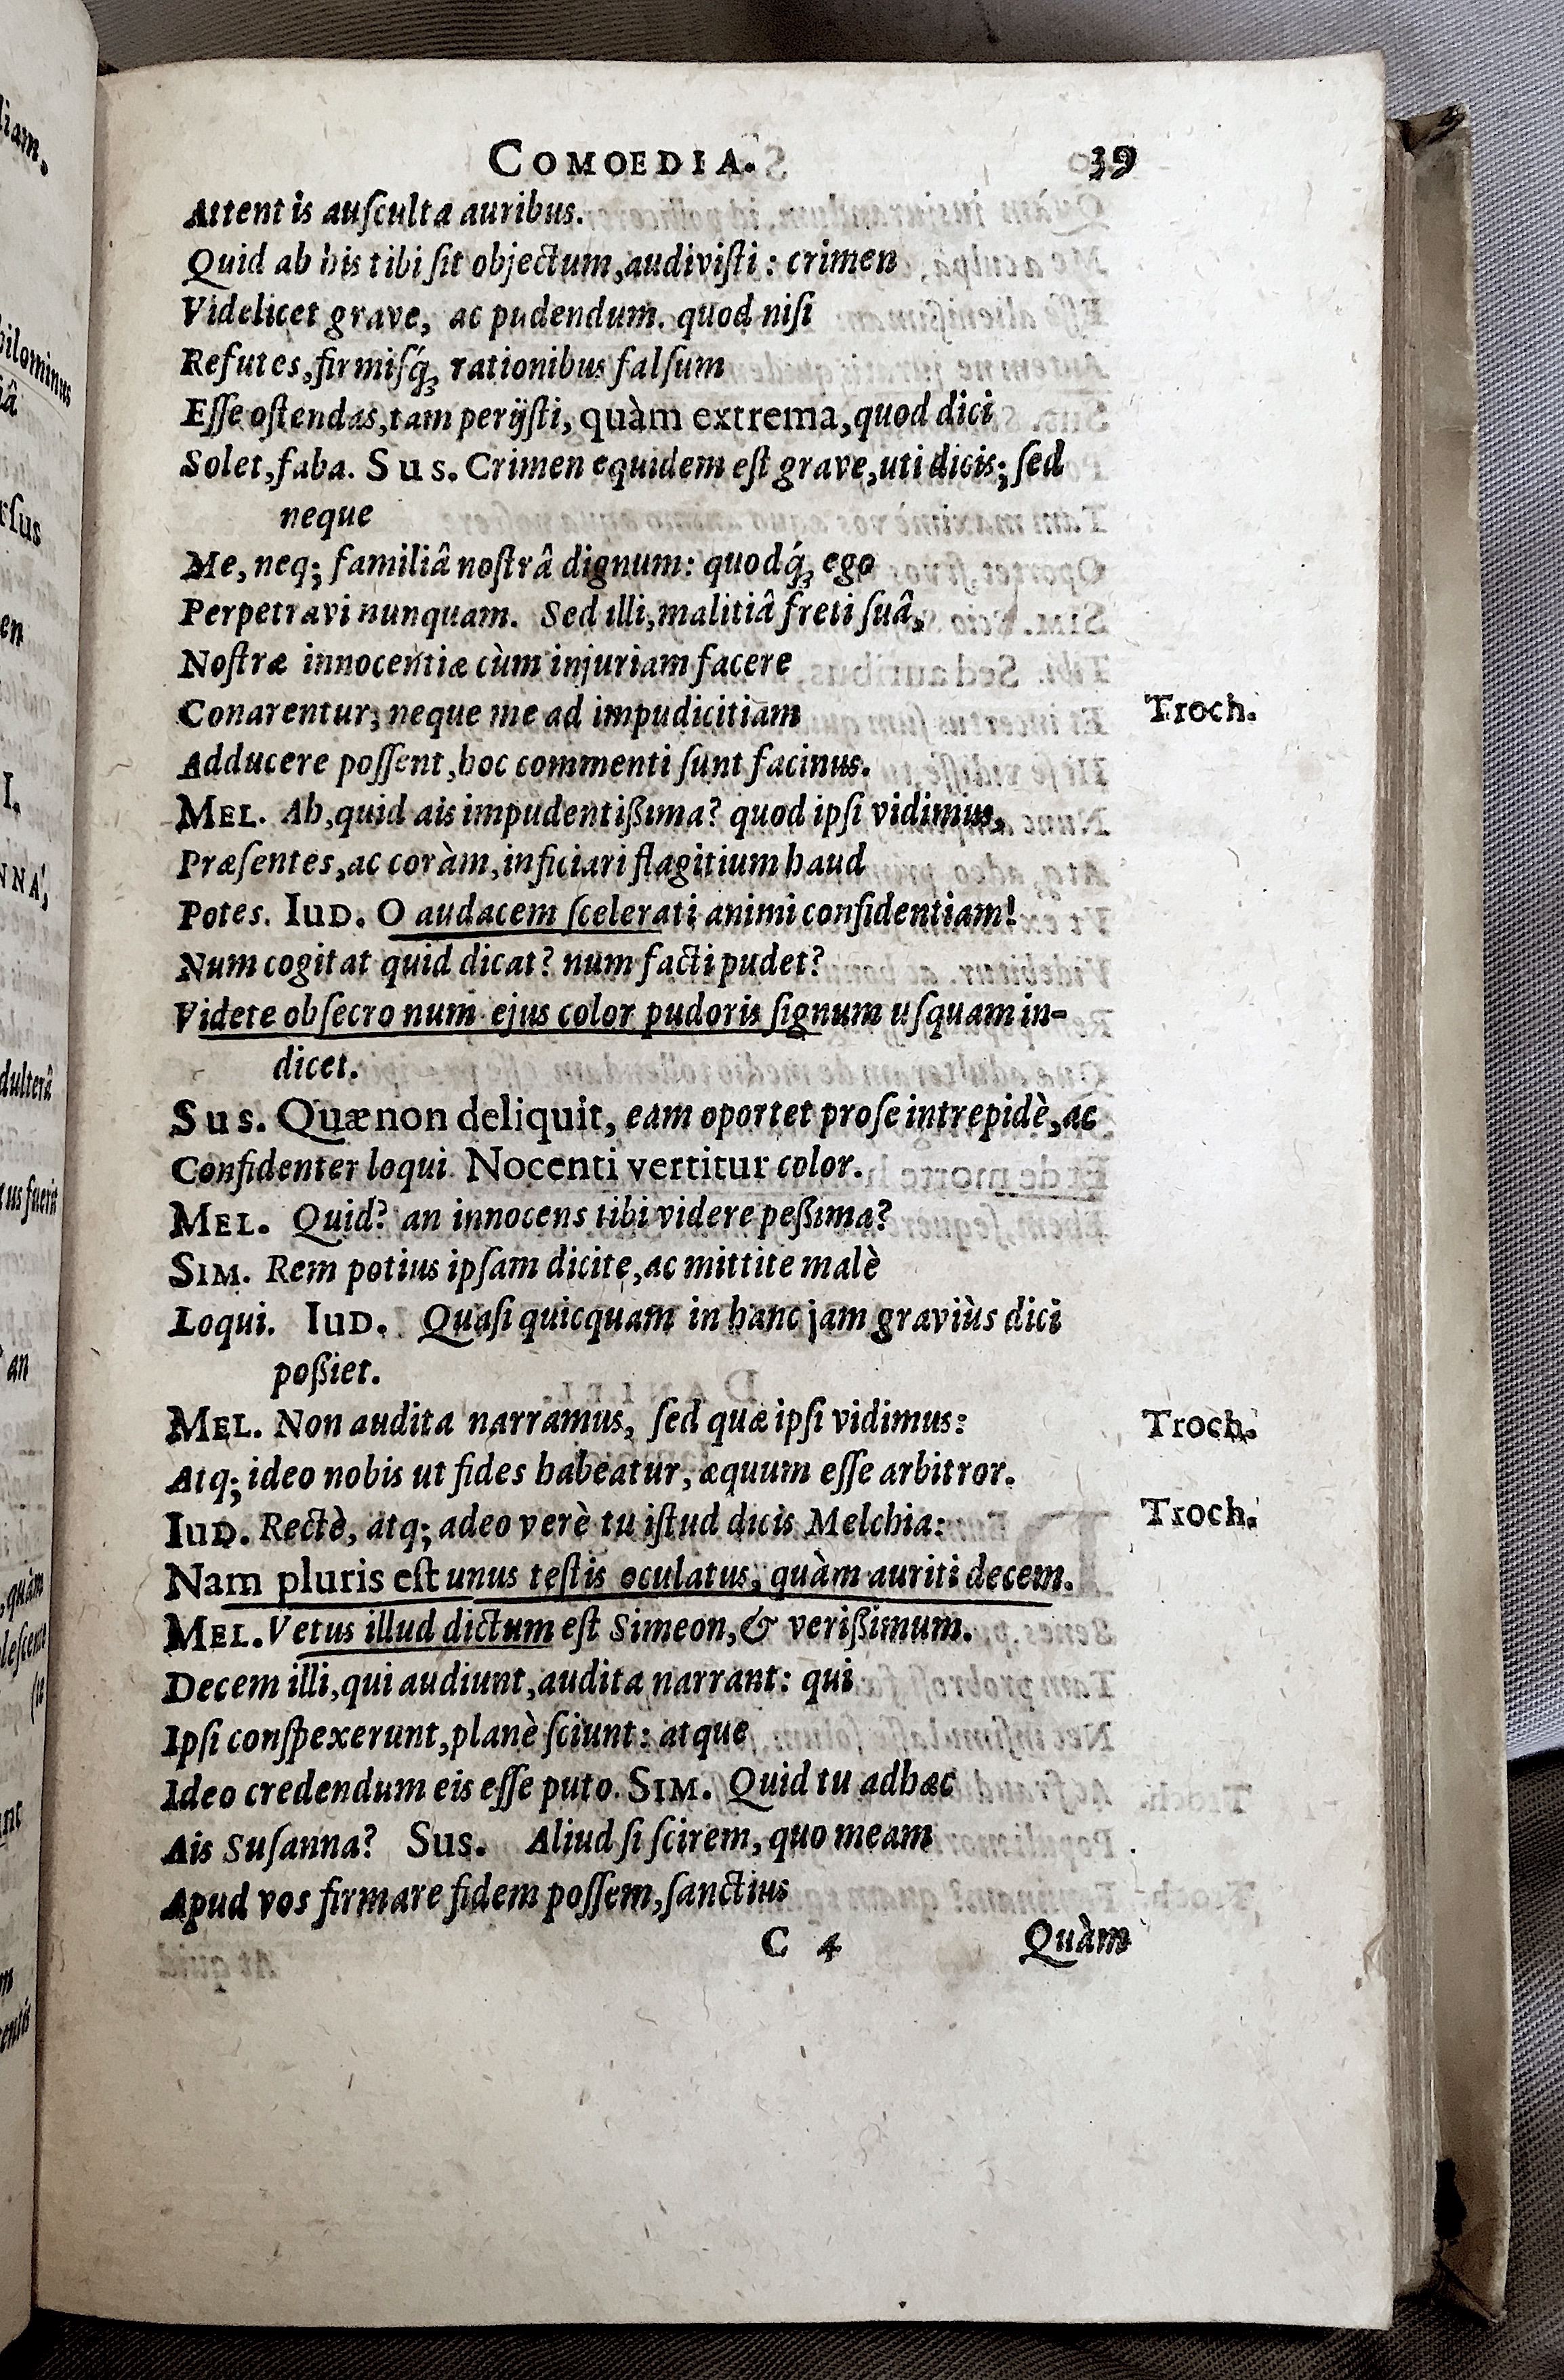 COMOEDIA. 39
Attentis auſculta auribus.
Quid ab his tibi ſit objectum, audiviſti: crimen
Videlicet grave, ac pudendum. quod niſi
Refutes, firmiſq́ꝫ rationibus falſum
Eſſe oſtendas, tam perijſti, quàm extrema, quod dici
Solet, faba. Sus. Crimen equidem eſt grave, uti dicis; ſed
neque
Me, neq; familiâ noſtrâ dignum: quodq́ꝫ ego
Perpetravi nunquam. Sed illi, malitiâ freti ſuâ,
Noſtræ innocentiæ cùm injuriam facere
Conarentur; neque me ad impudicitiam Troch.
Adducere poſſent, hoc commenti ſunt facinus.
MEL. Ah, quid ais impudentißima? quod ipſi vidimus,
Præſentes, ac coràm, inficiari flagitium haud
Potes. IUD. O audacem ſcelerati animi confidentiam!
Num cogitat quid dicat? num facti pudet?
Videte obſecro num ejus color pudoris ſignum uſquam in-
dicet.
Sus. Quæ non deliquit, eam oportet pro ſe intrepidè, ac
Confidenter loqui. Nocenti vertitur color.
MEL. Quid? an innocens tibi videre peßima?
SIM. Rem potius ipſam dicite, ac mittite malè
Loqui. IUD. Quaſi quicquam in hanc jam graviùs dici
poßiet.
MEL. Non audita narramus, ſed quæ ipſi vidimus: Troch.
Atq; ideo nobis ut fides habeatur, æquum eſſe arbitror.
IUD. Rectè, atq; adeo verè tu iſtud dicis Melchia: Troch.
Nam pluris eſt unus teſtis oculatus, quàm auriti decem.
MEL. Vetus illud dictum eſt Simeon, & verißimum.
Decem illi, qui audiunt, audita narrant: qui
Ipſi conſpexerunt, planè ſciunt: atque
Ideo credendum eis eſſe puto. SIM. Quid tu ad hæc
Ais Suſanna? Sus. Aliud ſi ſcirem, quo meam
Apud vos firmare fidem poſſem, ſanctius
C 4 Quàm